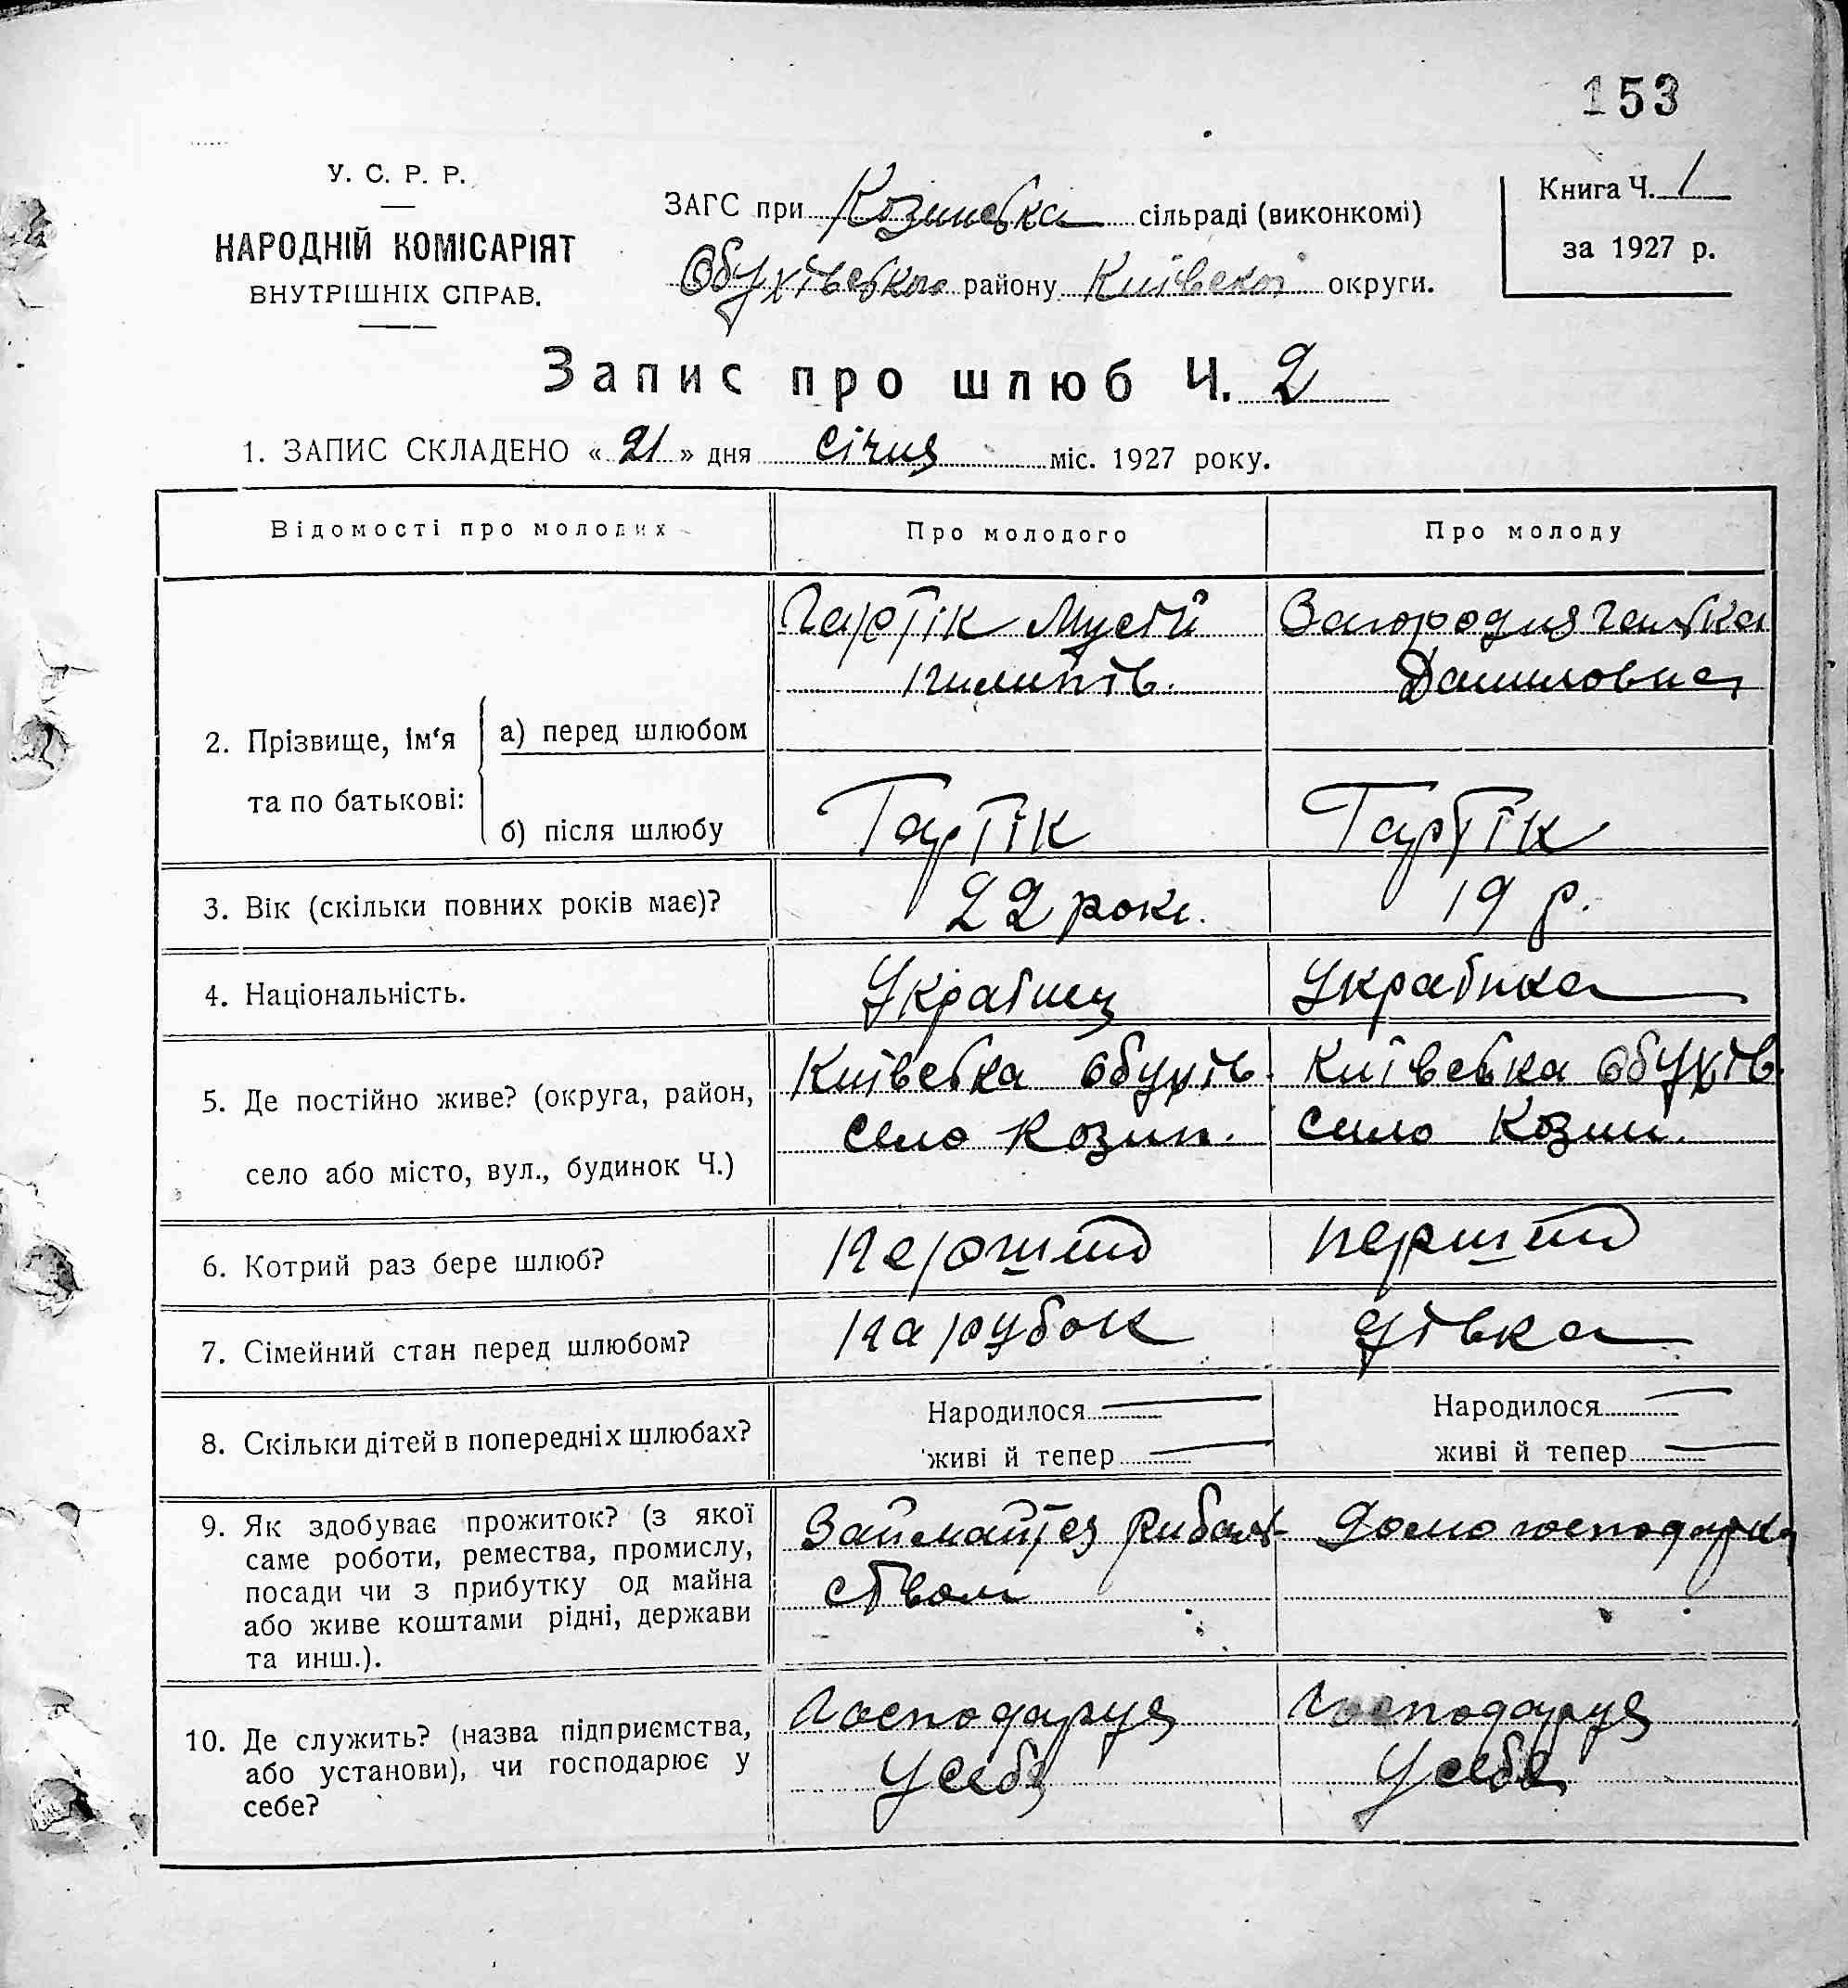 153
У. С. Р. Р.
НАРОДНІЙ КОМІСАРІЯТ
ВНУТРІШНІХ СПРАВ.
ЗАГС при Козинська сільраді (виконкомі)
Обухівського району Київської округи.
Книга Ч. 1
за 1927 р.
Запис про шлюб Ч. 2
1. ЗАПИС СКЛАДЕНО « 21 » дня січня міс. 1927 року.
Відомості про молодих
Про молодого
Про молоду
2. Прізвище, ім'я
та по батькові:
а) перед шлюбом
Гартік Мусій
Пилипів.
Загородня Галька
Даниловна
б) після шлюбу
Гартік
Гартік
3. Вік (скільки повних років має)?
22 роки.
19 р.
4. Національність.
Українец
Українка
5. Де постійно живе? (округа, район,
село або місто, вул., будинок Ч.)
Київська Обухів.
село Козин.
Київська Обухів.
село Козин.
6. Котрий раз бере шлюб?
Перший
Перший
7. Сімейний стан перед шлюбом?
Парубок
дівка
8. Скільки дітей в попередніх шлюбах?
Народилося
живі й тепер
Народилося
живі й тепер
9. Як здобуває прожиток? (з якої
саме роботи, ремества, промислу,
посади чи з прибутку од майна
або живе коштами рідні, держави
та инш.).
Займаїтся рибаль-
ством
Домогосподарка
10. Де служить? (назва підприємства,
або установи), чи господарює у
себе?
Господаруя
У себя
Господаруя
У себя